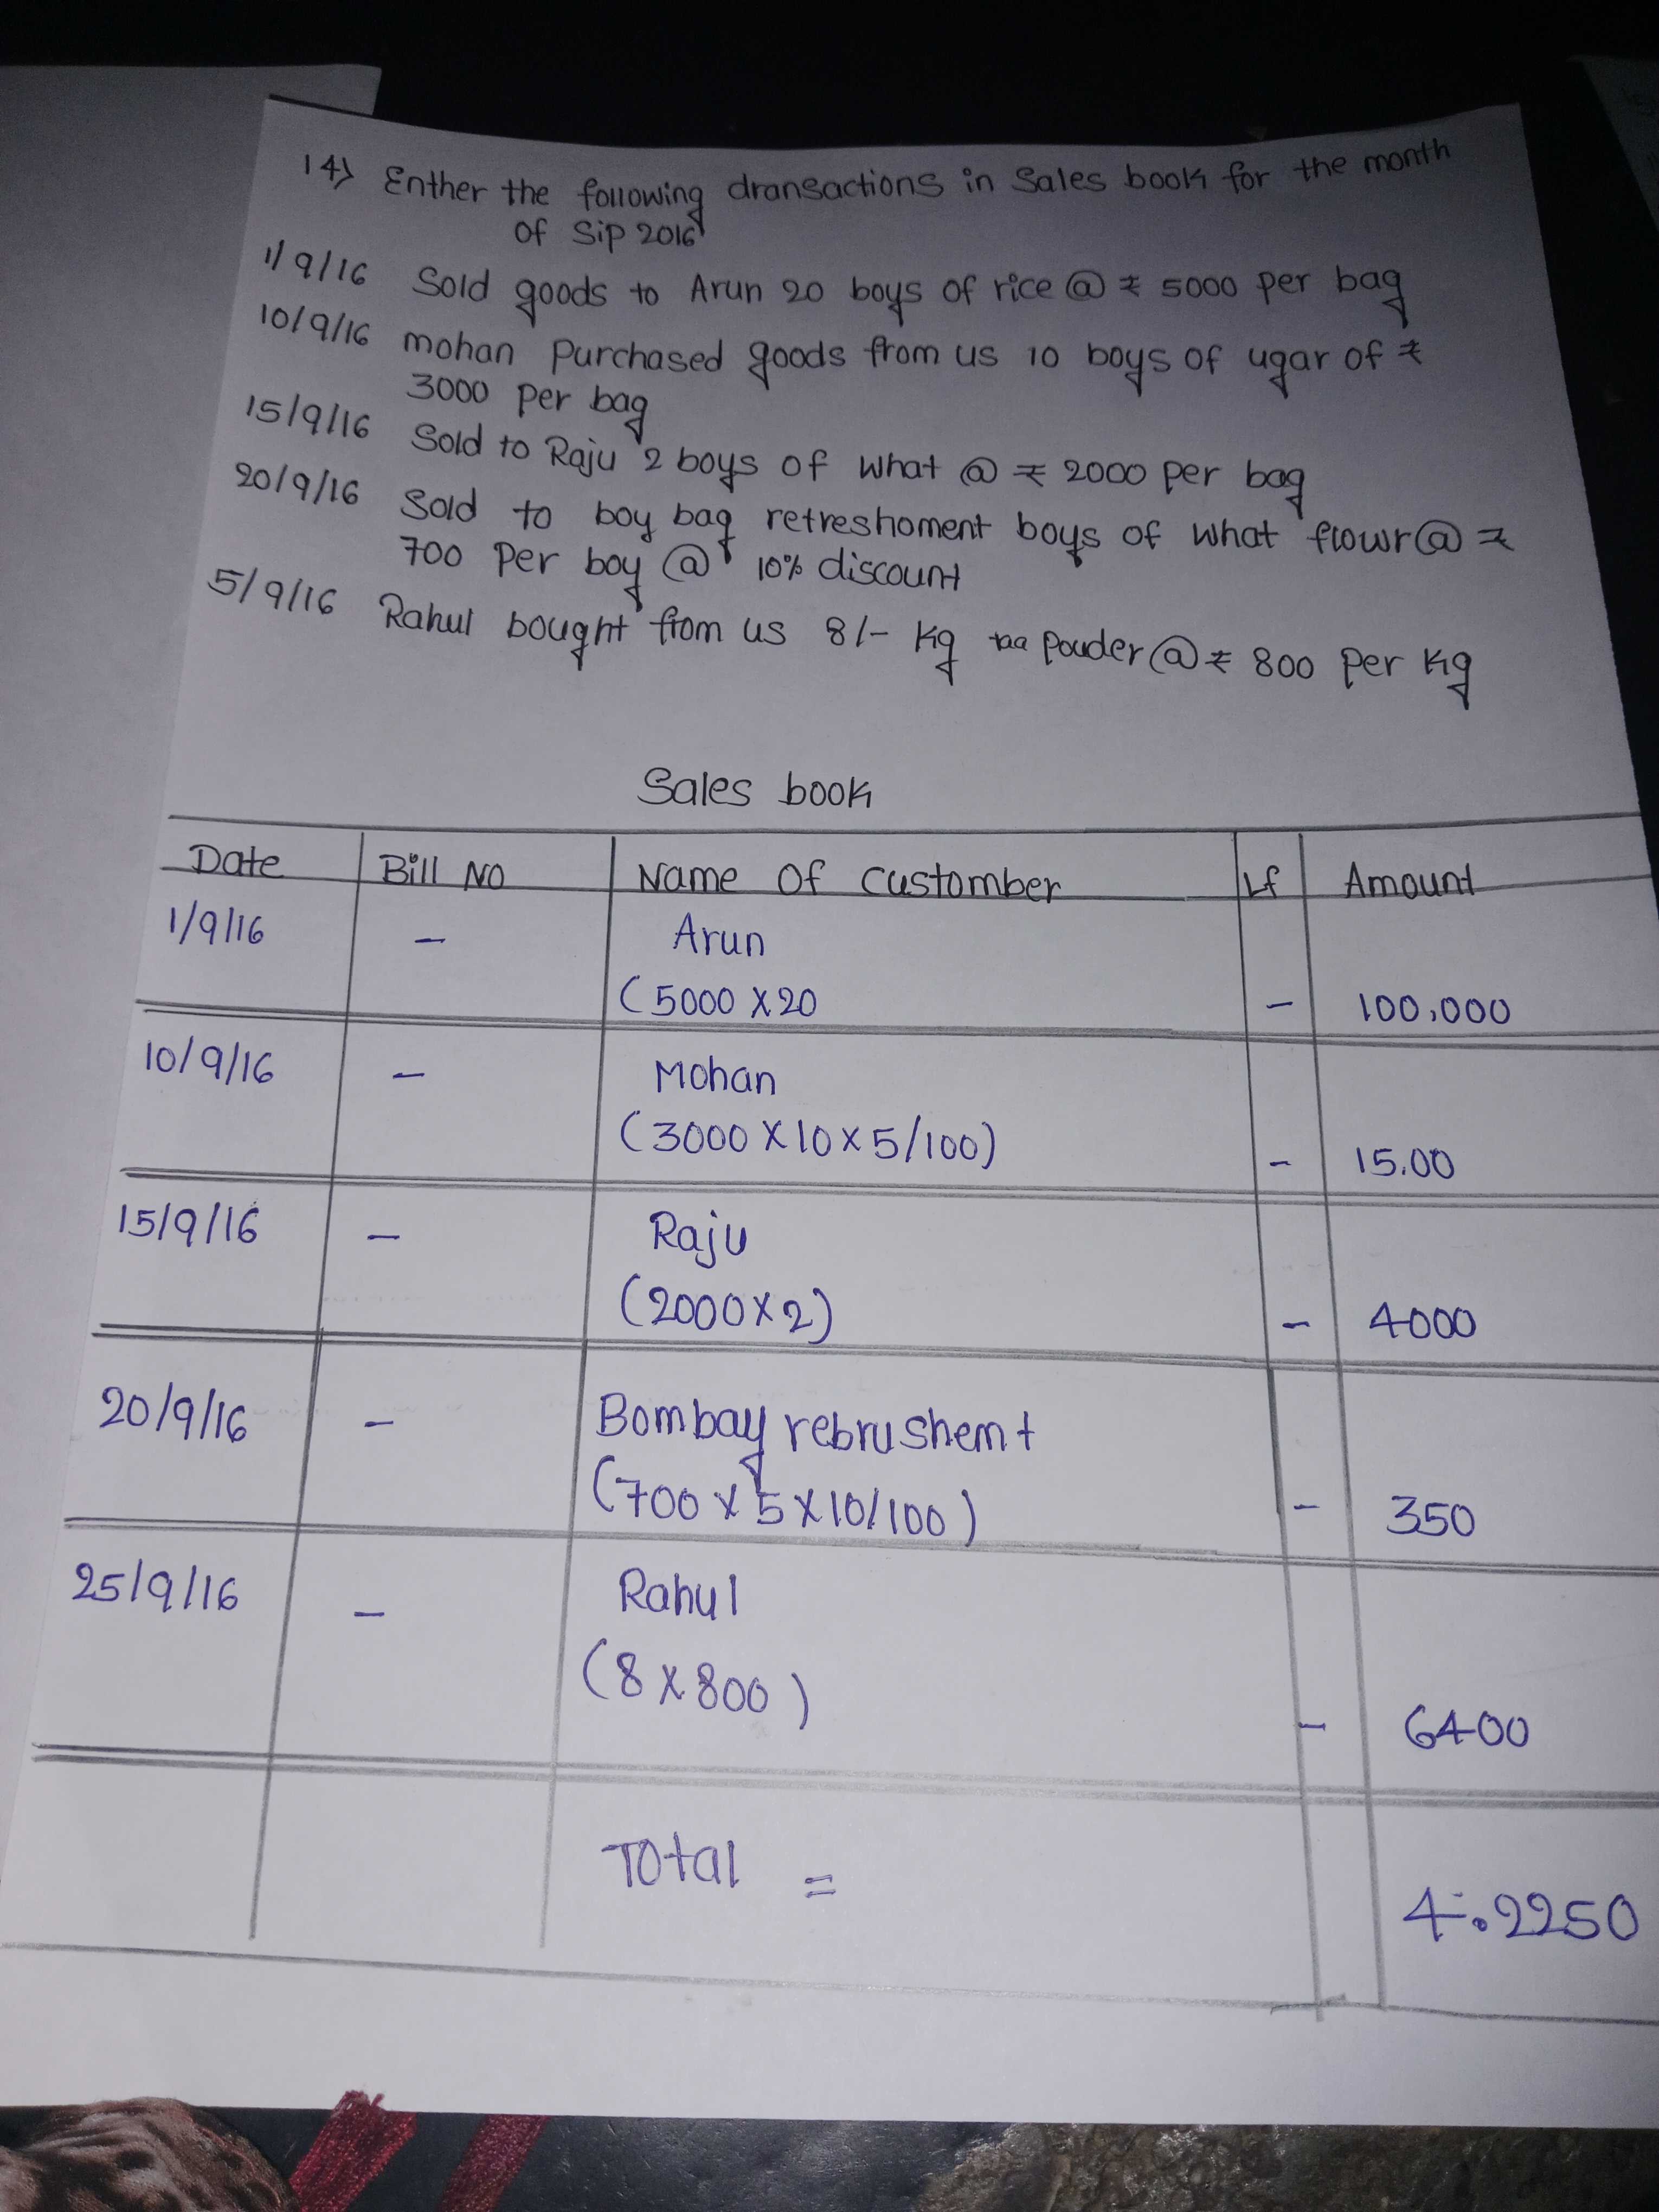 14) Enther the following dransactions in Sales book for the month
of Sip 2016
1/9/16 Sold goods to Arun 20 boys of rice @ ₹ 5000 per bag
10/9/16 mohan purchased goods from us 10 boys of ugar of ₹
3000 per bag
15/9/16 Sold to Raju 2 boys of what @ ₹ 2000 per bag
20/9/16 Sold to boy bag retreshoment boys of what flowr @ ₹
700 per boy @ 10% discount
5/9/16 Rahul bought from us 8/- kg pouder @ ₹ 800 per kg
Sales book
Date Bill No Name Of Customber Lf Amount
1/9/16 - Arun
(5000 X 20 - 100,000
10/9/16 - Mohan
(3000 X 10 X 5/100) - 15.00
15/9/16 - Raju
(2000 X 2) - 4000
20/9/16 - Bombay rebrushemt
(700 X 5 X 10/100) - 350
25/9/16 - Rahul
(8 X 800) - 6400
Total = 4.2250